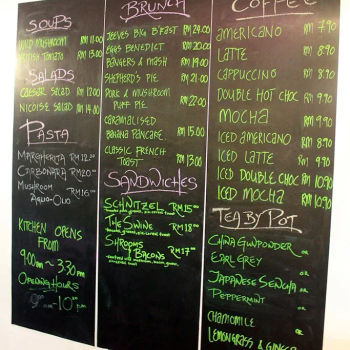 SOUPS
WILD MUSHROOM RM 11.00
BRITISH TOMATO RM 13.00
SALADS
CAESAR SALAD RM 12.00
NICOISE SALAD RM 14.00
PASTA
MARGHERITA RM 12.00
CARBONARA RM 20.00
MUSHROOM RM 16.00
AGLIO-OLIO
KITCHEN OPENS
FROM
9:00AM ~ 3:30PM
OPENING HOURS
9:00AM - 10:30PM
BRUNCH
JEEVES BIG B'FAST RM 24.00
EGGS BENEDICT RM 20.00
BANGERS & MASH RM 19.00
SHEPHERD'S PIE RM 21.00
PORK & MUSHROOM RM 22.00
PUFF PIE
CARAMALISED
BANANA PANCAKE RM 15.00
CLASSIC FRENCH
TOAST RM 13.00
SANDWICHES
SCHNITZEL RM 15.00
THE SWINE RM 18.00
SHROOMS
& BACONS RM 17.00
COFFEE
AMERICANO RM 7.90
LATTE RM 8.90
CAPPUCCINO RM 8.90
DOUBLE HOT CHOC RM 9.90
MOCHA RM 9.90
ICED AMERICANO RM 8.90
ICED LATTE RM 9.90
ICED DOUBLE CHOC RM 10.90
ICED MOCHA RM 10.90
TEA BY POT
CHINA GUNPOWDER
OR
EARL GREY
OR
JAPANESE SENCHA
OR
PEPPERMINT
OR
CHAMOMILE
OR
LEMONGRASS & GINGER